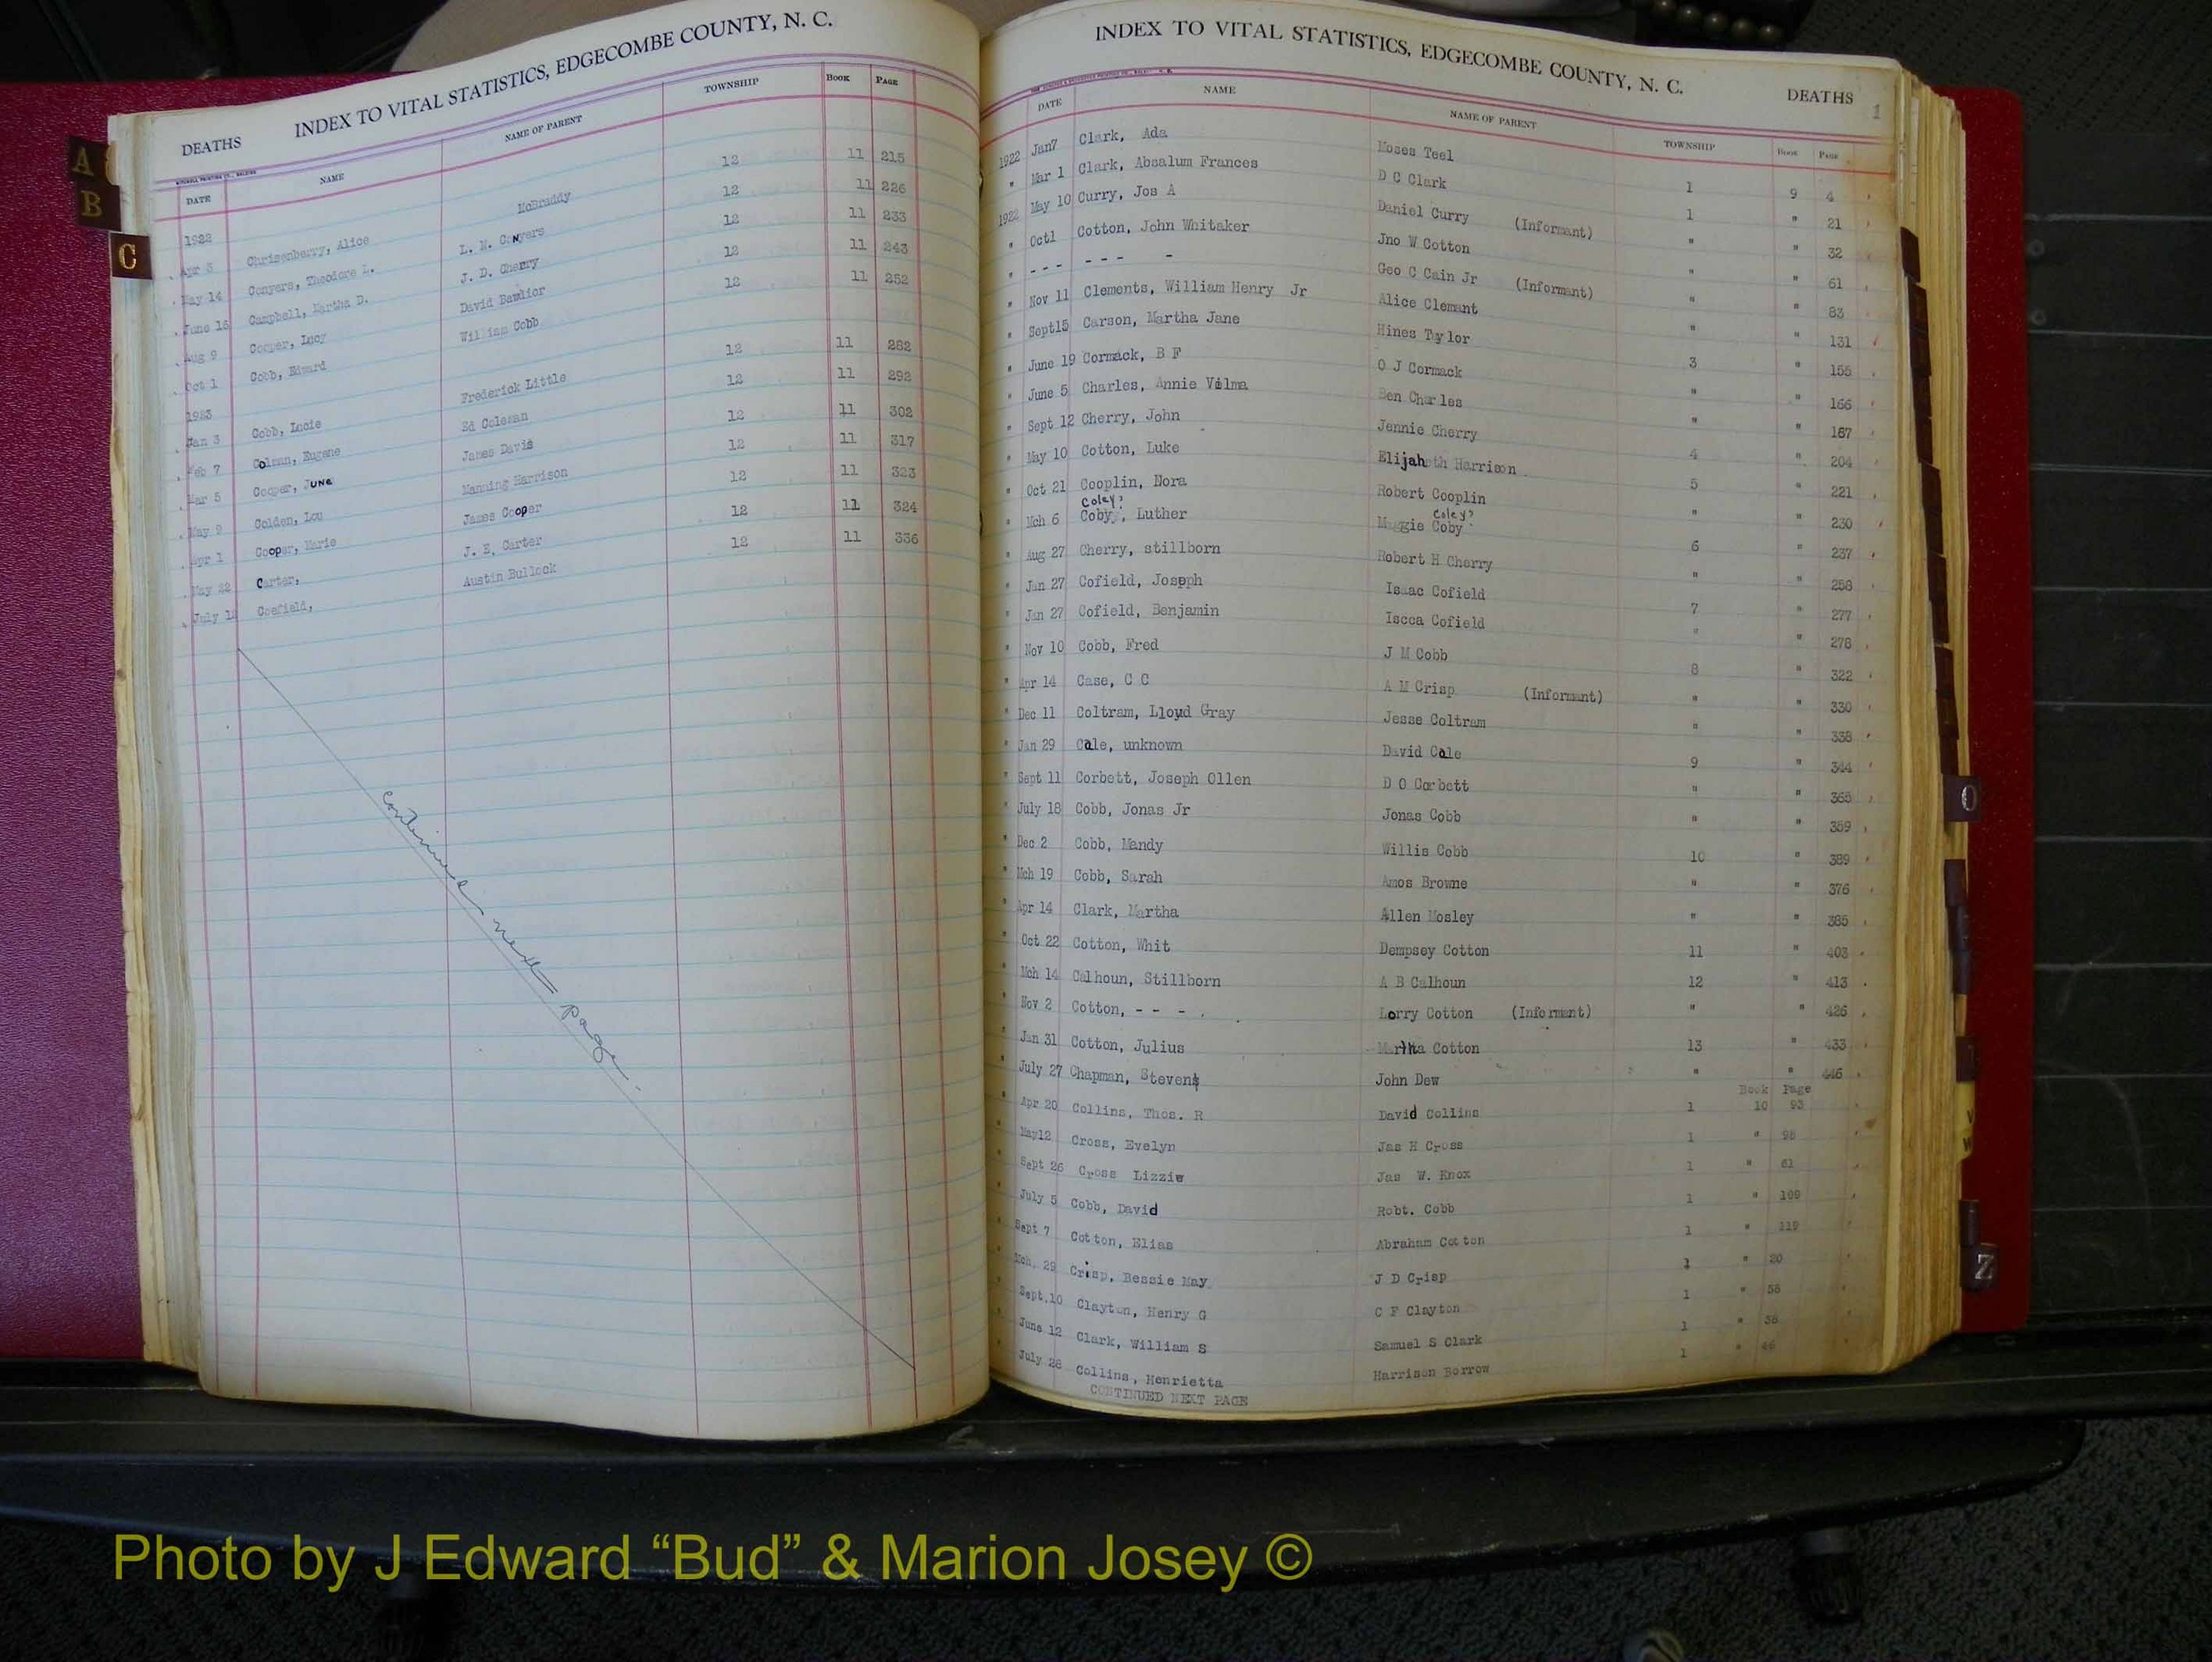 INDEX TO VITAL STATISTICS, EDGECOMBE COUNTY, N. C.
DEATHS
DATE NAME NAME OF PARENT TOWNSHIP BOOK PAGE
1922
Apr 3 Chrisenberry, Alice McBruddy 12 11 215
May 14 Conyers, Theodore L. L. N. Conyers 12 11 226
June 16 Campbell, Martha D. J. D. Cherry 12 11 233
Aug 9 Cooper, Lucy David 12 11 243
Oct 1 Cobb, Edward William Cobb 12 11 252
1923
Jan 3 Cobb, Lucie Frederick Little 12 11 282
Feb 7 Colman, Eugene Ed Coleman 12 11 292
Mar 5 Cooper, June James Davis 12 11 302
May 9 Colden, Lou Manning Harrison 12 11 317
Apr 1 Cooper, Marie James Cooper 12 11 323
May 22 Carter, J. E. Carter 12 11 324
July 12 Coefield, Austin Bullock 12 11 336
Continued next page.
INDEX TO VITAL STATISTICS, EDGECOMBE COUNTY, N. C.
DEATHS 1
DATE NAME NAME OF PARENT TOWNSHIP BOOK PAGE
1922 Jan7 Clark, Ada Moses Teel 1 9 4
" Mar 1 Clark, Absalum Frances D C Clark 1 " 21
1922 May 10 Curry, Jos A Daniel Curry (Informant) " " 32
" Oct1 Cotton, John Whitaker Jno W Cotton " " 61
" - - - - - - - Geo C Cain Jr (Informant) " " 83
" Nov 11 Clements, William Henry Jr Alice Clemant " " 131
" Sept15 Carson, Martha Jane Hines Taylor 3 " 155
" June 19 Cormack, B F O J Cormack " " 166
" June 5 Charles, Annie Vilma Ben Charles " " 167
" Sept 12 Cherry, John Jennie Cherry 4 " 204
" May 10 Cotton, Luke Elijah Harrison 5 " 221
" Oct 21 Cooplin, Nora Robert Cooplin " " 230
Coley? Coley?
" Mch 6 Coby, Luther Maggie Coby 6 " 237
" Aug 27 Cherry, stillborn Robert H Cherry " " 258
" Jan 27 Cofield, Joseph Isaac Cofield 7 " 277
" Jan 27 Cofield, Benjamin Iscca Cofield " " 278
" Nov 10 Cobb, Fred J M Cobb 8 " 322
" Apr 14 Case, C C A M Crisp (Informant) " " 330
" Dec 11 Coltram, Lloyd Gray Jesse Coltram " " 338
" Jan 29 Cale, unknown David Cale 9 " 344
" Sept 11 Corbett, Joseph Ollen D O Corbett " " 365
" July 18 Cobb, Jonas Jr Jonas Cobb " " 359
" Dec 2 Cobb, Mandy Willis Cobb 10 " 389
" Mch 19 Cobb, Sarah Amos Browne " " 376
" Apr 14 Clark, Martha Allen Mosley " " 385
" Oct 22 Cotton, Whit Dempsey Cotton 11 " 403
" Mch 14 Calhoun, Stillborn A B Calhoun 12 " 413
" Nov 2 Cotton, - - - . Lorry Cotton (Informant) " " 426
" Jan 31 Cotton, Julius Martha Cotton 13 " 433
" July 27 Chapman, Stevens John Dew " " 446
Book Page
" Apr 20 Collins, Thos. R David Collins 1 10 93
" May12 Cross, Evelyn Jas H Cross 1 " 98
" Sept 26 Cross Lizzie Jas W. Knox 1 " 81
" July 5 Cobb, David Robt. Cobb 1 " 109
" Sept 7 Cotton, Elias Abraham Cotton 1 " 119
" Mch. 29 Crisp, Bessie May J D Crisp 1 " 20
" Sept.10 Clayton, Henry G C F Clayton 1 "
" June 12 Clark, William S Samuel S Clark 1 "
" July 28 Collins, Henrietta Harrison Borrow 1 "
CONTINUED NEXT PAGE
A
B
C
O
V
W
Z
Photo by J Edward “Bud” & Marion Josey ©